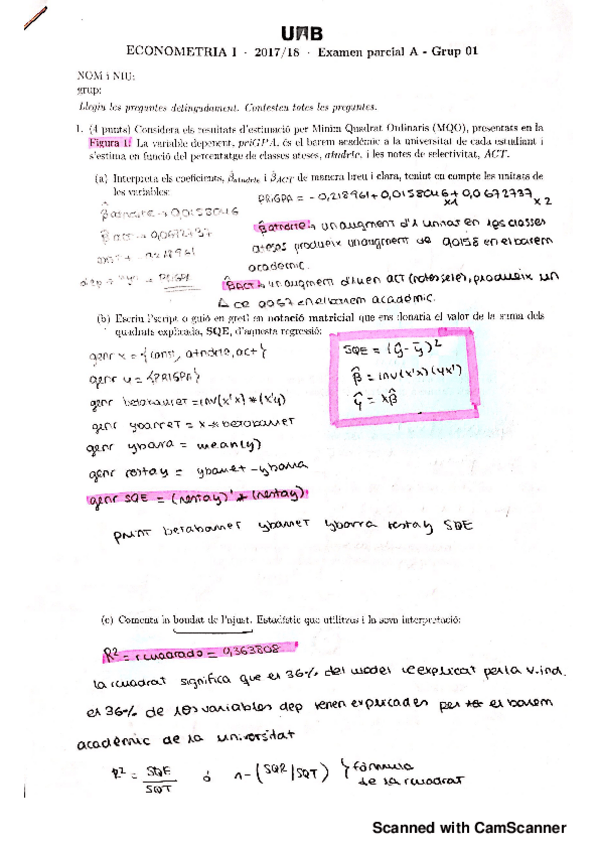 UAB
ECONOMETRIA I · 2017/18 · Examen parcial A - Grup 01
NOM i NIU:
grup:
Llegiu les preguntes detingudament. Contesteu totes les preguntes.
1. (4 punts) Considera els resultats d'estimació per Mínim Quadrat Ordinaris (MQO), presentats en la
Figura 1. La variable depenent, priGPA, és el barem acadèmic a la universitat de cada estudiant i
s'estima en funció del percentatge de classes ateses, atndrte, i les notes de selectivitat, ACT.
(a) Interpreta els coeficients, β̂atndrte i β̂ACT de manera breu i clara, tenint en compte les unitats de
les variables:
PRIGPA = -0,218961+0,0158046+0,0672737
x1 x2
β̂atndrte = 0,0158046
β̂act = 0,0672737
const = -0,218961
dep = PRIGPA
β̂atndrte → un augment d'1 unitat en les classes
ateses produeix un augment de 0,0158 en el barem
acadèmic.
β̂ACT → un augment d'1 en ACT (notes sele), produeix un
Δ de 0,067 en el barem acadèmic.
(b) Escriu l'script o guió en gretl en notació matricial que ens donaria el valor de la suma dels
quadrats explicada, SQE, d'aquesta regressió:
genr x = {const, atndrte, act}
genr y = {PRIGPA}
genr betabarret = inv(x'x)*(x'y)
genr ybarret = x*betabarret
genr ybarra = mean(y)
genr restay = ybarret-ybarra
genr SQE = (restay)'*(restay)
print betabarret ybarret ybarra restay SQE
SQE = (ŷ-ȳ)²
β̂ = inv(x'x)(yx')
ŷ = xβ̂
(c) Comenta la bondat de l'ajust. Estadístic que utilitzes i la seva interpretació:
R² = rcuadrado = 0,363808
la rcuadrat significa que el 36% del model ve explicat per la v.ind.
el 36% de les variables dep venen explicades per el barem
acadèmic de la universitat
R² = SQE/SQT ó 1-(SQR/SQT) } fórmula
de la rcuadrat
Scanned with CamScanner